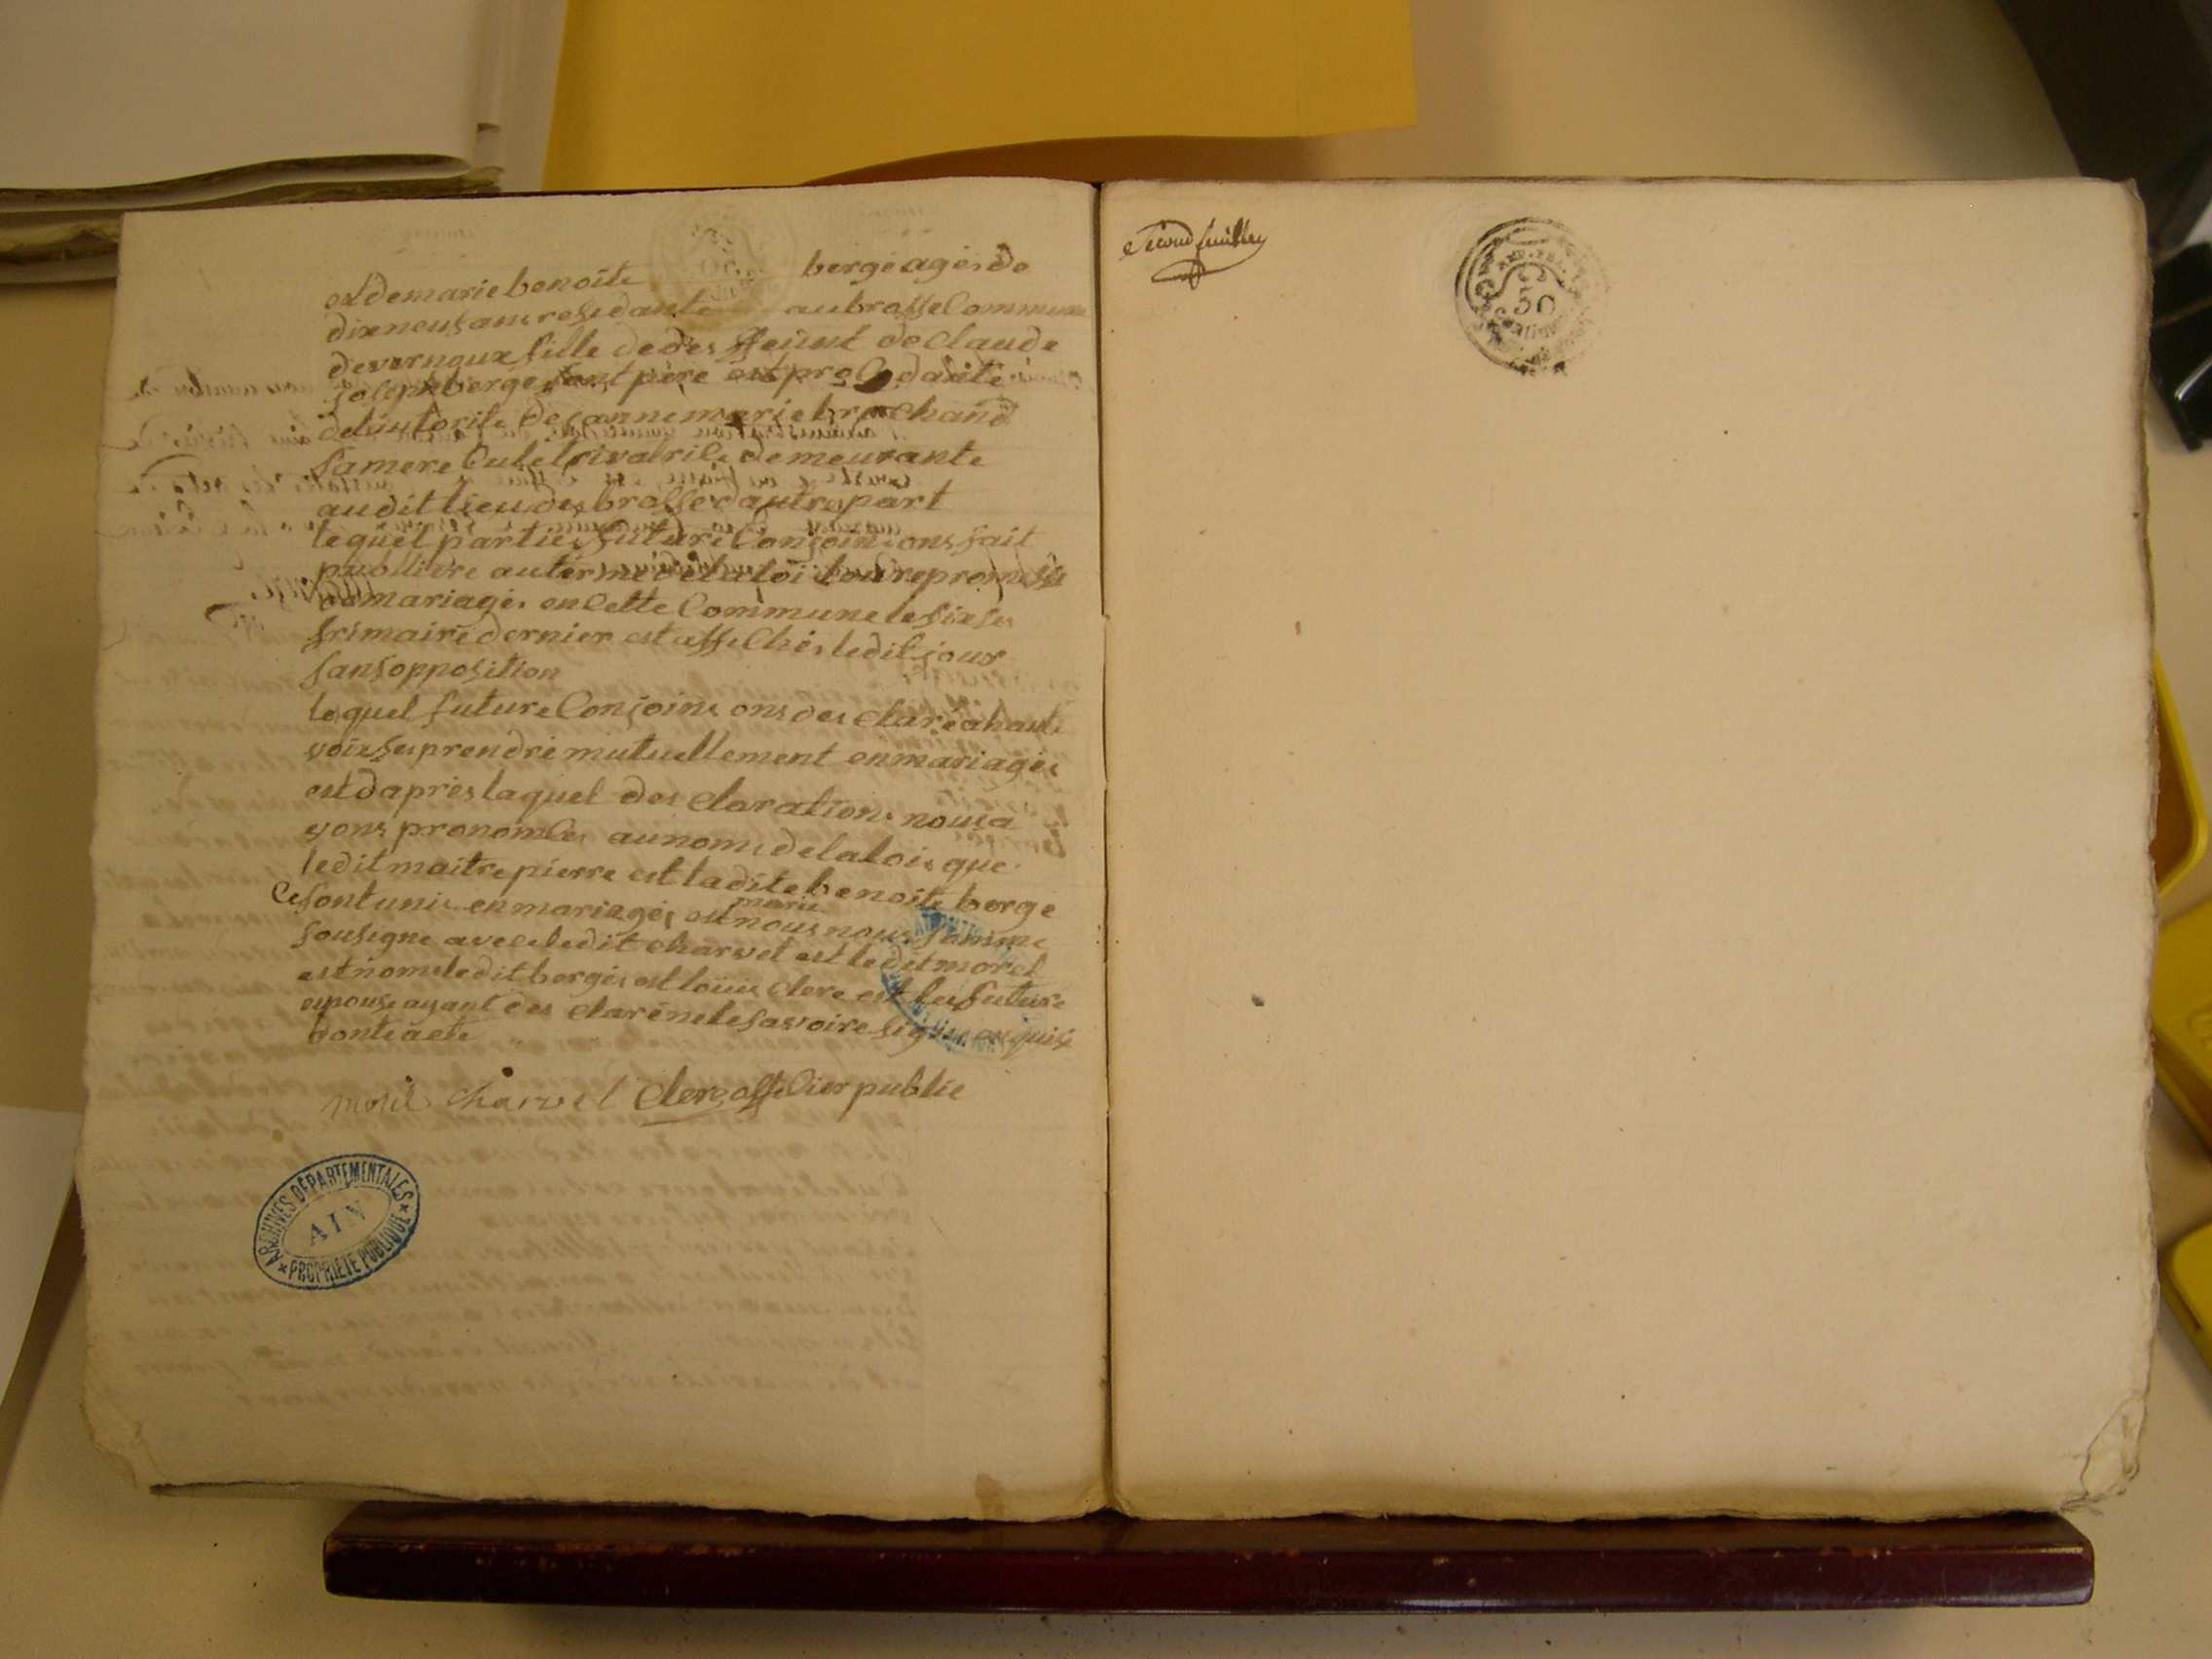 est de marie benoite berge agé de
dix neuf ans residante au brosse Commune
de vernoux fille de des ffeunt de Claude
joseph berge sont père est procedante
de lutorite de anne marie brochand
sa mere Cultivatrile demeurante
au dit lieu des brosses dautre part
lequel parties future Conjoins ons fait
publlierè au terme de la loi leure promesse
de mariage en Cette Commune le six
frimaire dernier est affiché ledit jour
sans opposition
lequel future Conjoins ons des claré a haute
voix ses prendre mutuellement en mariage
est daprès laquel des claration nous a
vons prononcé au nom de la loi que
ledit maitre pierre est la dite benoite berge
Ce sont uni en mariage est
marie
nous nous somme
sousigne avec ledit charvet est le dit morel
est nom ledit berge est louis clere est les future
epouse ayant des claré ne le savoire signe requis
dont acte
morel charvet Clere officier public
ARCHIVES DÉPARTEMENTALES
AIN
PROPRIÉTÉ PUBLIQUE
Second feuillet
50
Centimes